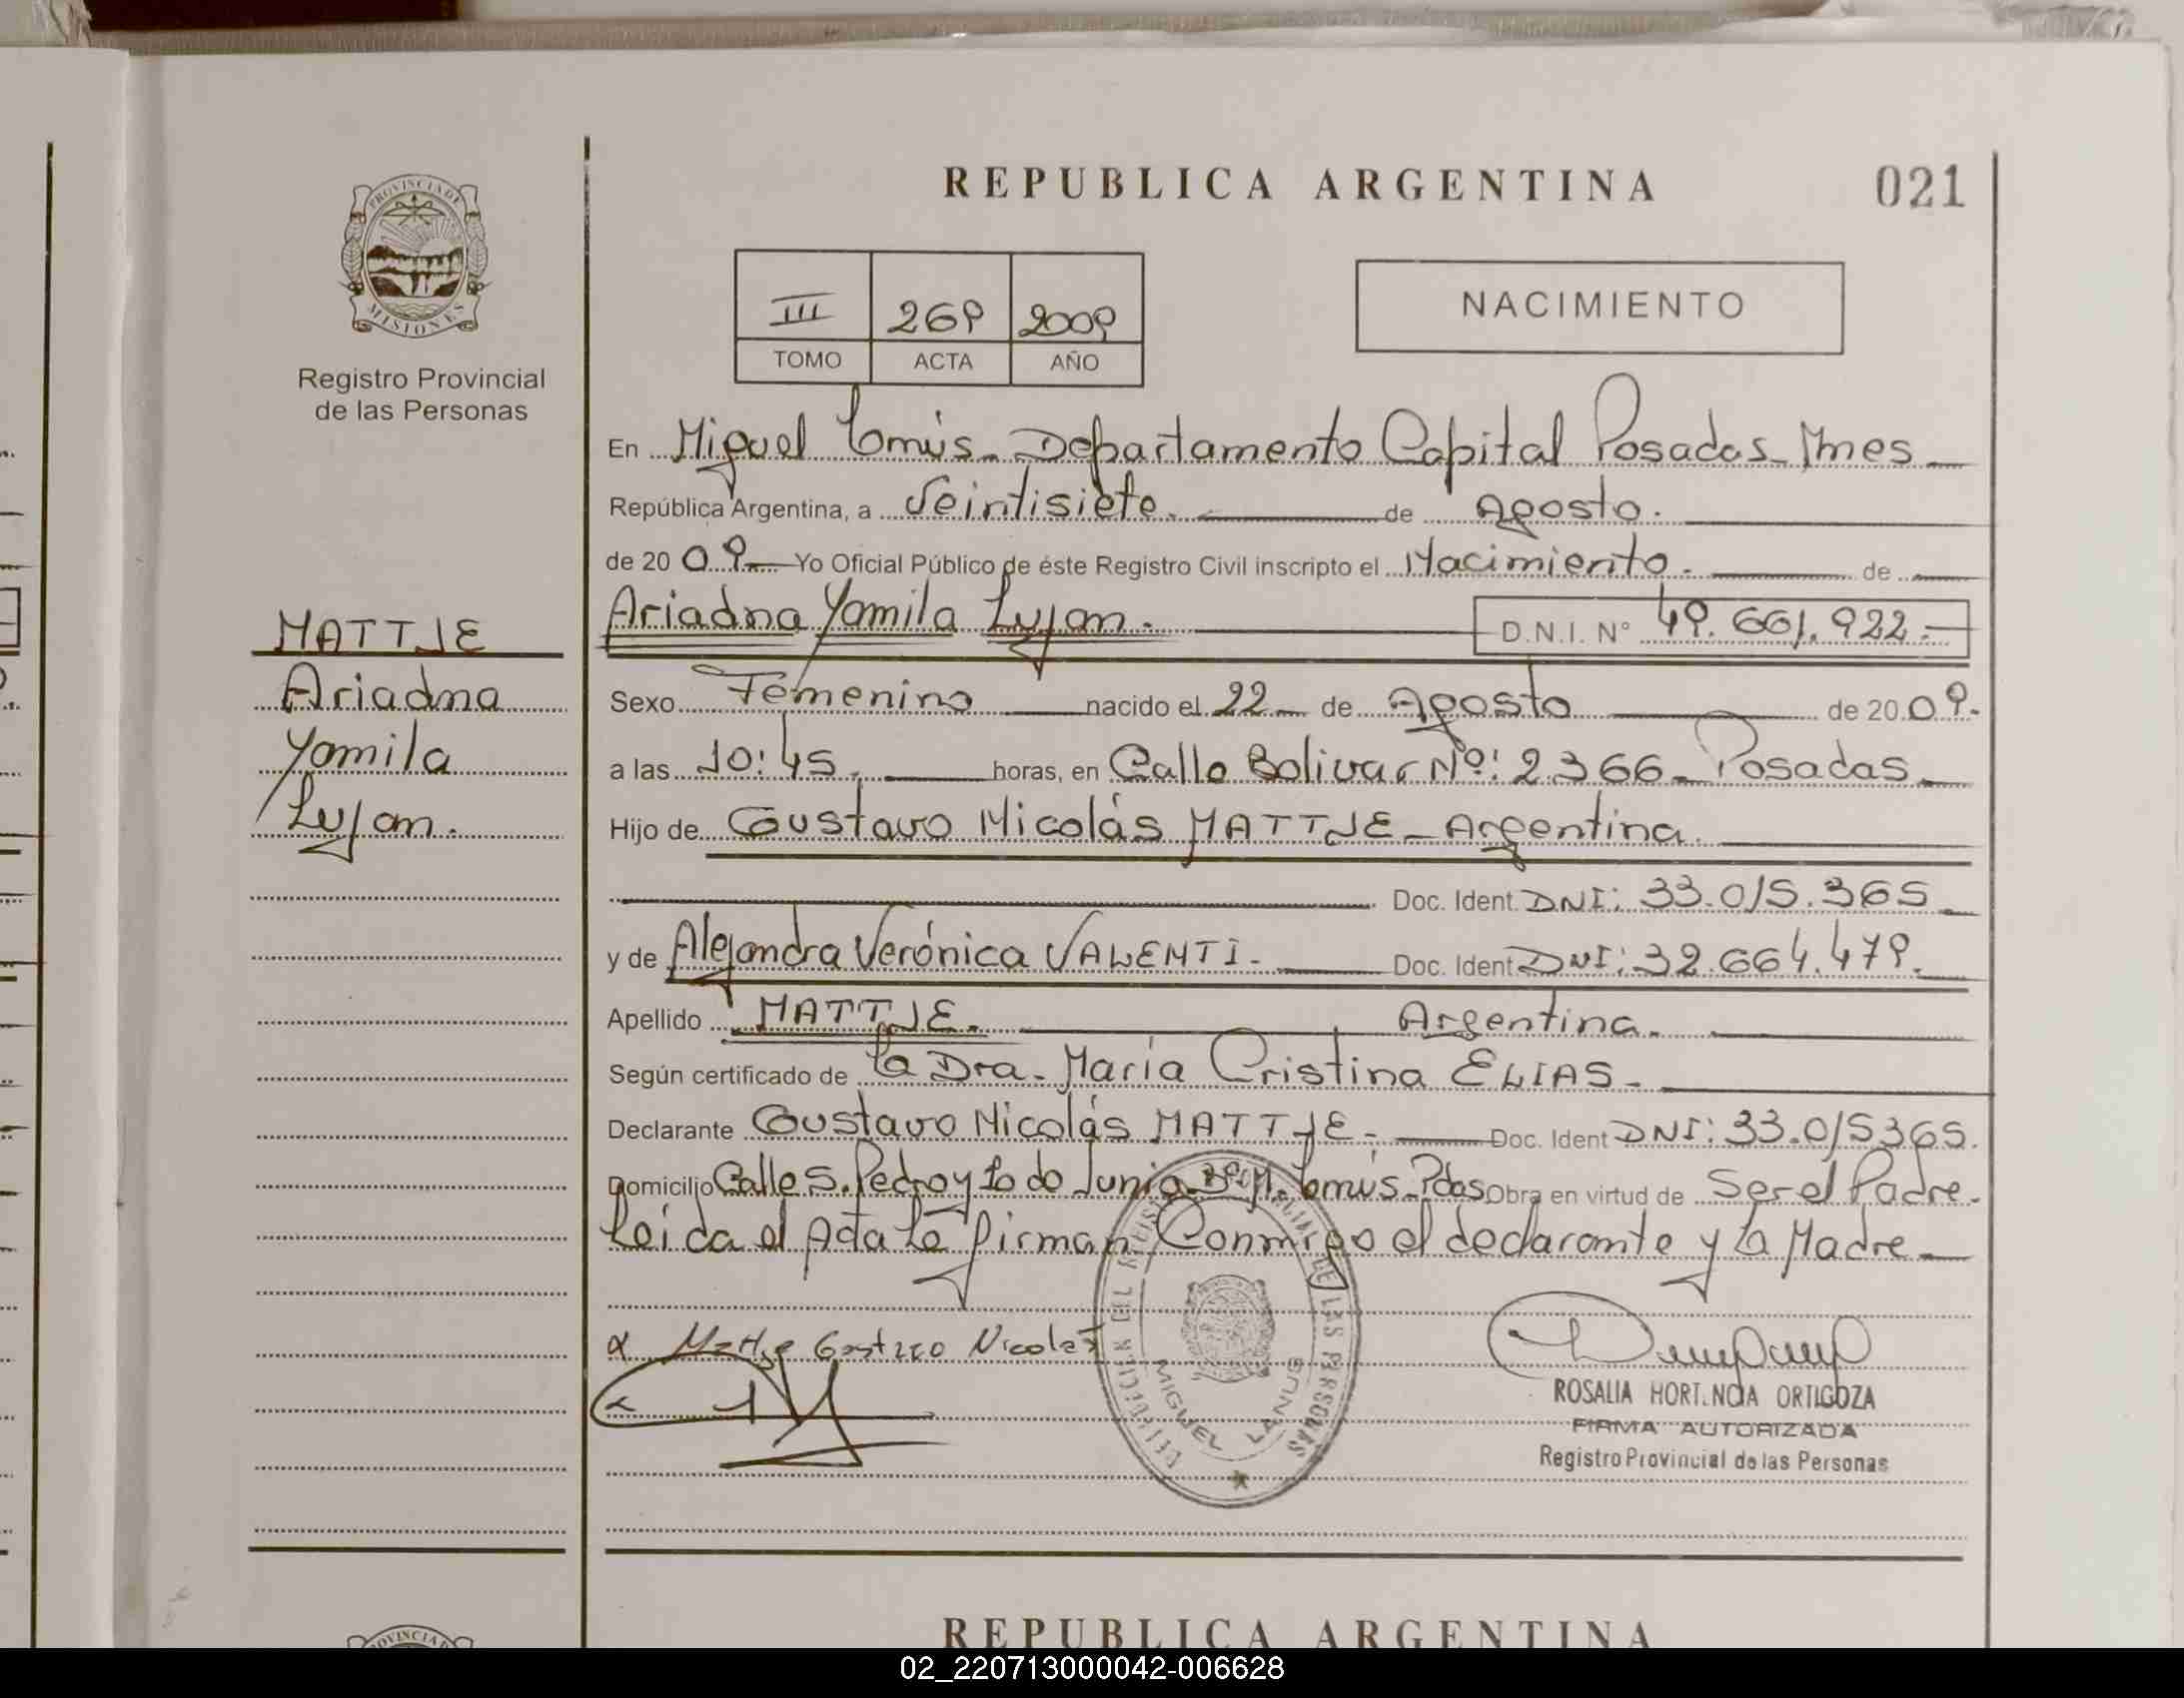 REPUBLICA ARGENTINA
021
PROVINCIA DE
MISIONES
Registro Provincial
de las Personas
III 269 2009
TOMO ACTA AÑO
NACIMIENTO
MATTJE
Ariadna
Yamila
Lujan.
En Miguel Lanús - Departamento Capital Posadas - Mnes
República Argentina, a Veintisiete. de Agosto.
de 20 09 Yo Oficial Público de éste Registro Civil inscripto el Nacimiento. de
Ariadna Yamila Lujan. D.N.I. N° 49.661.922.-
Sexo Femenino nacido el 22 de Agosto de 20 09.
a las 10:45. horas, en Calle Bolivar Nº: 2366 - Posadas
Hijo de Gustavo Nicolás MATTJE - Argentina.
Doc. Ident. DNI: 33.015.365
y de Alejandra Verónica VALENTI. Doc. Ident DNI: 32.664.479.
Apellido MATTJE. Argentina.
Según certificado de la Dra. María Cristina ELIAS.
Declarante Gustavo Nicolás MATTJE. Doc. Ident DNI: 33.015365.
Domicilio Calle S. Pedro y 10 de Junio Bº M. Lanús - Pdas Obra en virtud de Ser el Padre.
Leida el Acta la firman Conmigo el declarante y la Madre
Mattje Gustavo Nicolas
DEL REGISTRO PROVINCIAL DE LAS PERSONAS
MIGUEL LANUS
ROSALIA HORT.NCIA ORTIGOZA
FIRMA AUTORIZADA
Registro Provincial de las Personas
PROVINCIA
REPUBLICA ARGENTINA
02_220713000042-006628